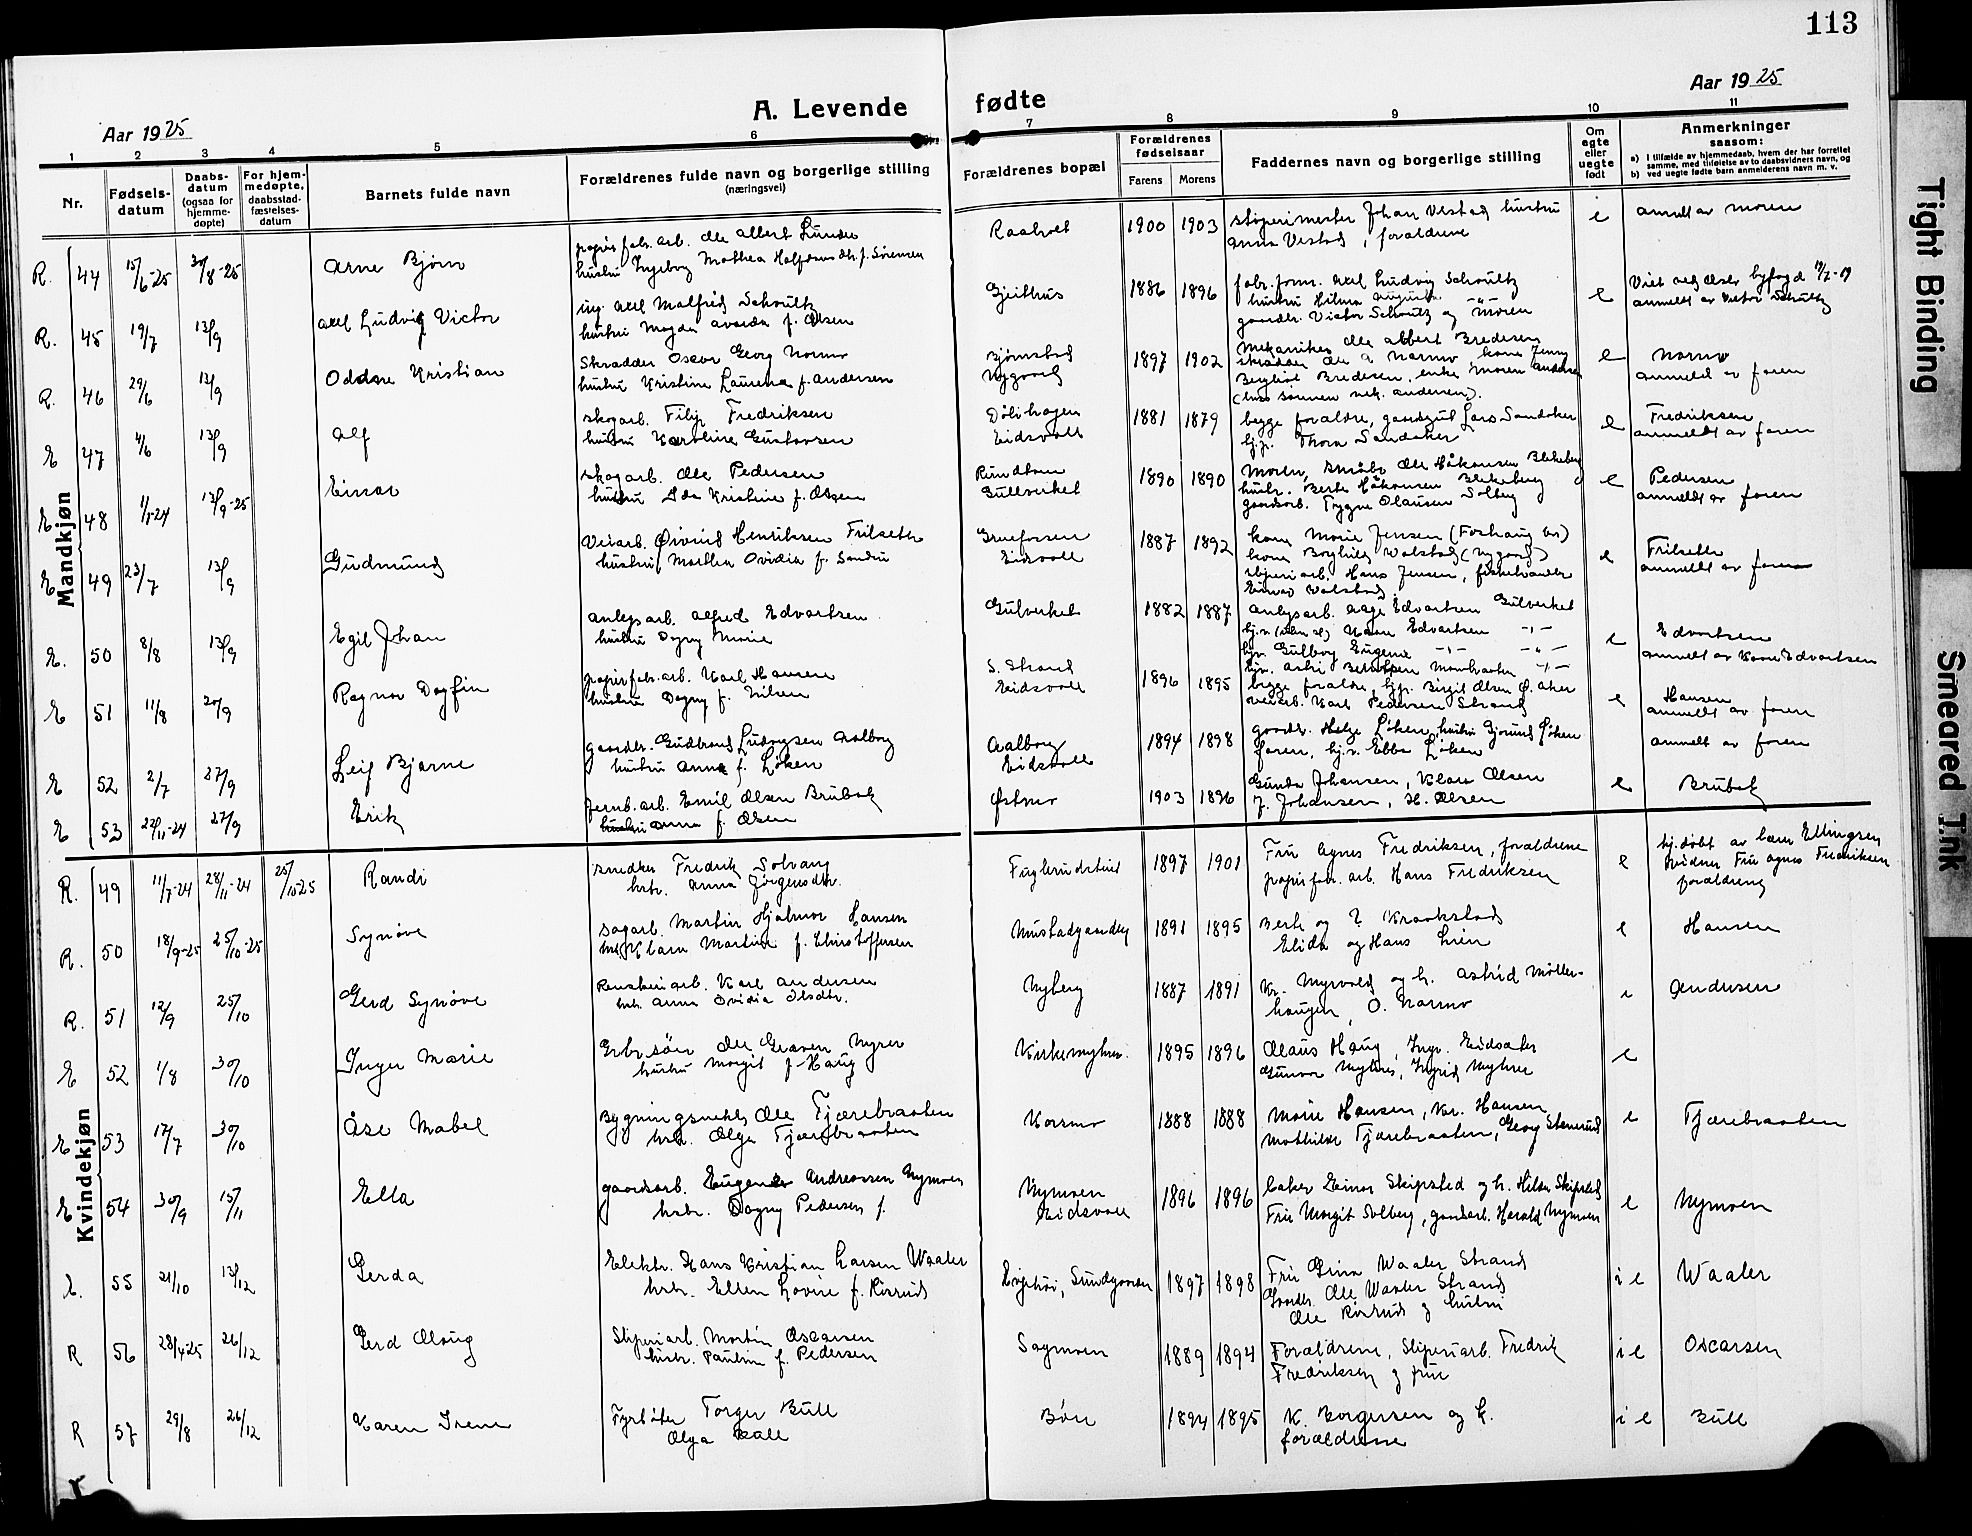 113
Aar 1925
A. Levende
fødte
Aar 1925
1
2
3
4
5
6
7
8
9
10
11
Nr.
Fødsels-
datum
Daabs-
datum
(ogsaa for
hjemme-
døpte)
For hjem-
medøpte,
daabsstad-
fæstelses-
datum
Barnets fulde navn
Forældrenes fulde navn og borgerlige stilling
(næringsvei)
Forældrenes bopæl
Forældrenes
fødselsaar
Farens
Morens
Faddernes navn og borgerlige stilling
Om
ægte
eller
uegte
født
Anmerkninger
saasom:
a) i tilfælde av hjemmedaab, hvem der har forrettet
samme, med tilføielse av to daabsvidners navn, og
b) ved uegte fødte barn anmelderens navn m. v.
Mandkjøn
R. 44 15/6-25 30/8-25 Arne Bjørn
papirfabr.arb. Ole Albert Lunde
hustru Ingeborg Mathea Halfdansdtr. f. Sørensen
Raaholt 1900 1903
støperimester Johan Vestad hustru
Anna Vestad, forældrene
e anmeldt av moren
R. 45 19/7 13/9 Axel Ludvig Victor
ing. Axel Malfred Schoultz
hustru Magda f. Olsen
Gjeithus 1886 1896
fabr.form. Axel Ludvig Schoultz
hustru Hilma Augusta
gaardbr. Victor Schoultz og moren
e Viet ved Oslo byfogd
anmeldt av Victor Schultz
R. 46 29/6 13/9 Oddne Kristian
Skrædder Oscar Georg Normo
hustru Kristine Laurena f. Andersen
Bjørnstad
Nygaard 1897 1902
Mekaniker Ole Albert Bredesen
skrædder Ole A Normo, kone Jenny
Berghiot Bredesen, enke Maren Andersen
e Normo
anmeldt av faren
E 47 4/6 13/9 Alf
skogarb. Filip Fredriksen
hustru Karoline Gustavsen
Dølihagen
Eidsvoll 1881 1879
begge forældre, gaardgut Lars Sandaker
hj.p. Thora Sandaker
e Fredriksen
anmeldt av faren
E 48 1/1-24 13/9-25 Einar
skogarb. Ole Pedersen
hustru Ida Kristine f. Olsen
Rundtom
Gullverket 1890 1890
Moren, småbr. Ole Håkonsen Blekeberg
hustr. Berte Håkonsen Blekeberg
gaardsarb. Trygve Olausen Solberg
e Pedersen
anmeldt av faren
E 49 23/7 13/9 Gudmund
Veiarb. Øivind Henriksen Frilseth
hustru Martha Ovidia f. Sandnu
Eidsvoll 1887 1892
kone Marie Jensen (Forhaug br)
kone Borghild Valstad (Nygaard)
sliperiarb. Hans Jensen, fiskehandler
Einar Valstad
e Frilseth
anmeldt av faren
E. 50 8/8 13/9 Egil Johan
anlegsarb. Alfred Edvartsen
hustru Dagny Marie
Gulverket 1882 1887
anlegsarb. Aage Edvartsen Gulverket
Kaare Edvartsen
Gulborg Eugenie
e Edvartsen
anmeldt av Kaare Edvartsen
E 51 11/8 20/9 Ragnar Dagfin
papirfabr.arb. Karl Hansen
hustru Dagny f. Nilsen
S. Strand
Eidsvoll 1896 1895
begge forældre, hjp. Birgit Olsen Ø. Aker
veiarb. Karl Pedersen Strand
e Hansen
anmeldt av faren
E 52 2/7 27/9 Leif Bjarne
gaardbr. Gudbrand Ludvigsen Aalborg
hustru Anna f. Løken
Aalborg
Eidsvoll 1894 1898
gaardbr. Helge Løken, hustru Gjorund Løken
faren, hj.v. Ebba Løken
anmeldt av faren
E 53 22/11-24 27/9 Erik
Jernb.arb. Emil Olsen Brubak
hustru Anna f. Olsen
Østmo 1903 1896
Gunda Johansen, Klara Olsen
J. Johansen, H. Olsen
e Brubak
Kvindekjøn
R. 49 11/7-24 28/11-24 25/10-25 Randi
snedker Fredrik Solvang
hstr. Anna Jørgensdtr.
Fuglerudstuet 1897 1901
Fru Agnes Fredriksen, forældrene
papirfabr.arb. Hans Fredriksen
e hj.døbt av læge Ellingsen
vidner Fru Agnes Fredriksen
forældrene
R. 50 18/9-25 25/10-25 Synøve
sagarb. Martin Hjalmar Hansen
Klara Martine f. Christoffersen
Mustadgaardby 1891 1895
Berte og ? Kraakstad
Elida og Hans Lien
e Hansen
R. 51 12/9 25/10 Gerd Synøve
Renskeriarb. Karl Andersen
hstr. Anna Ovidia Olsdtr.
Nyberg 1887 1891
Kr. Myrvold og h. Astrid Møller-
haugen, O. Normo
e Andersen
E 52 1/8 30/10 Inger Marie
Gbr.søn Ole Graven Myrer
hustru Margit f. Haug
Kirkemyhrer. 1895 1896
Olaus Haug, Ingr. Eidsaker
Gunvor Myhrer, Ingrid Myhrer
e
E 53 17/7 30/10 Åse Mabel
Bygningssnekk. Ole Tjærebraaten
hstr. Olga Tjærebraaten
Korsmo 1888 1888
Marie Hansen, Kr. Hansen
Mathilde Tjærebraaten, Georg Stenerud
e Tjærebraaten
E 54 30/9 15/11 Ella
gaardsarb. Eugen Andreassen Nymoen
hstr. Dagny Pedersen f.
Nymoen
Eidsvoll 1896 1896
baker Einar Skipsted og h. Hilda Skipsted
Fru Margit Solberg, gaardsarb. Harald Nymoen
e Nymoen
E. 55 21/10 13/12 Gerda
Elektr. Hans Kristian Larsen Waaler
hstr. Ellen Lovise f. Rørrud
Sundgaarden 1897 1898
Fru Grina Waaler Strand
Gaardbr. Ole Waaler Strand
Ole Rørrud og hustru
i e Waaler
R 56 28/4-25 26/12 Gerd Olaug
Sliperiarb. Martin Oscarsen
hustr. Pauline f. Pedersen
Sagmoen 1889 1894
Forældrene, Sliperiarb. Fredrik
Fredriksen og frue
i e Oscarsen
R 57 29/8 26/12 Karen Irene
Fyrbøter Torger Bull
Olga Bull
Bøn 1894 1895
K. Borgersen og h.
forældrene
i e Bull
Tight Binding
Smeared Ink